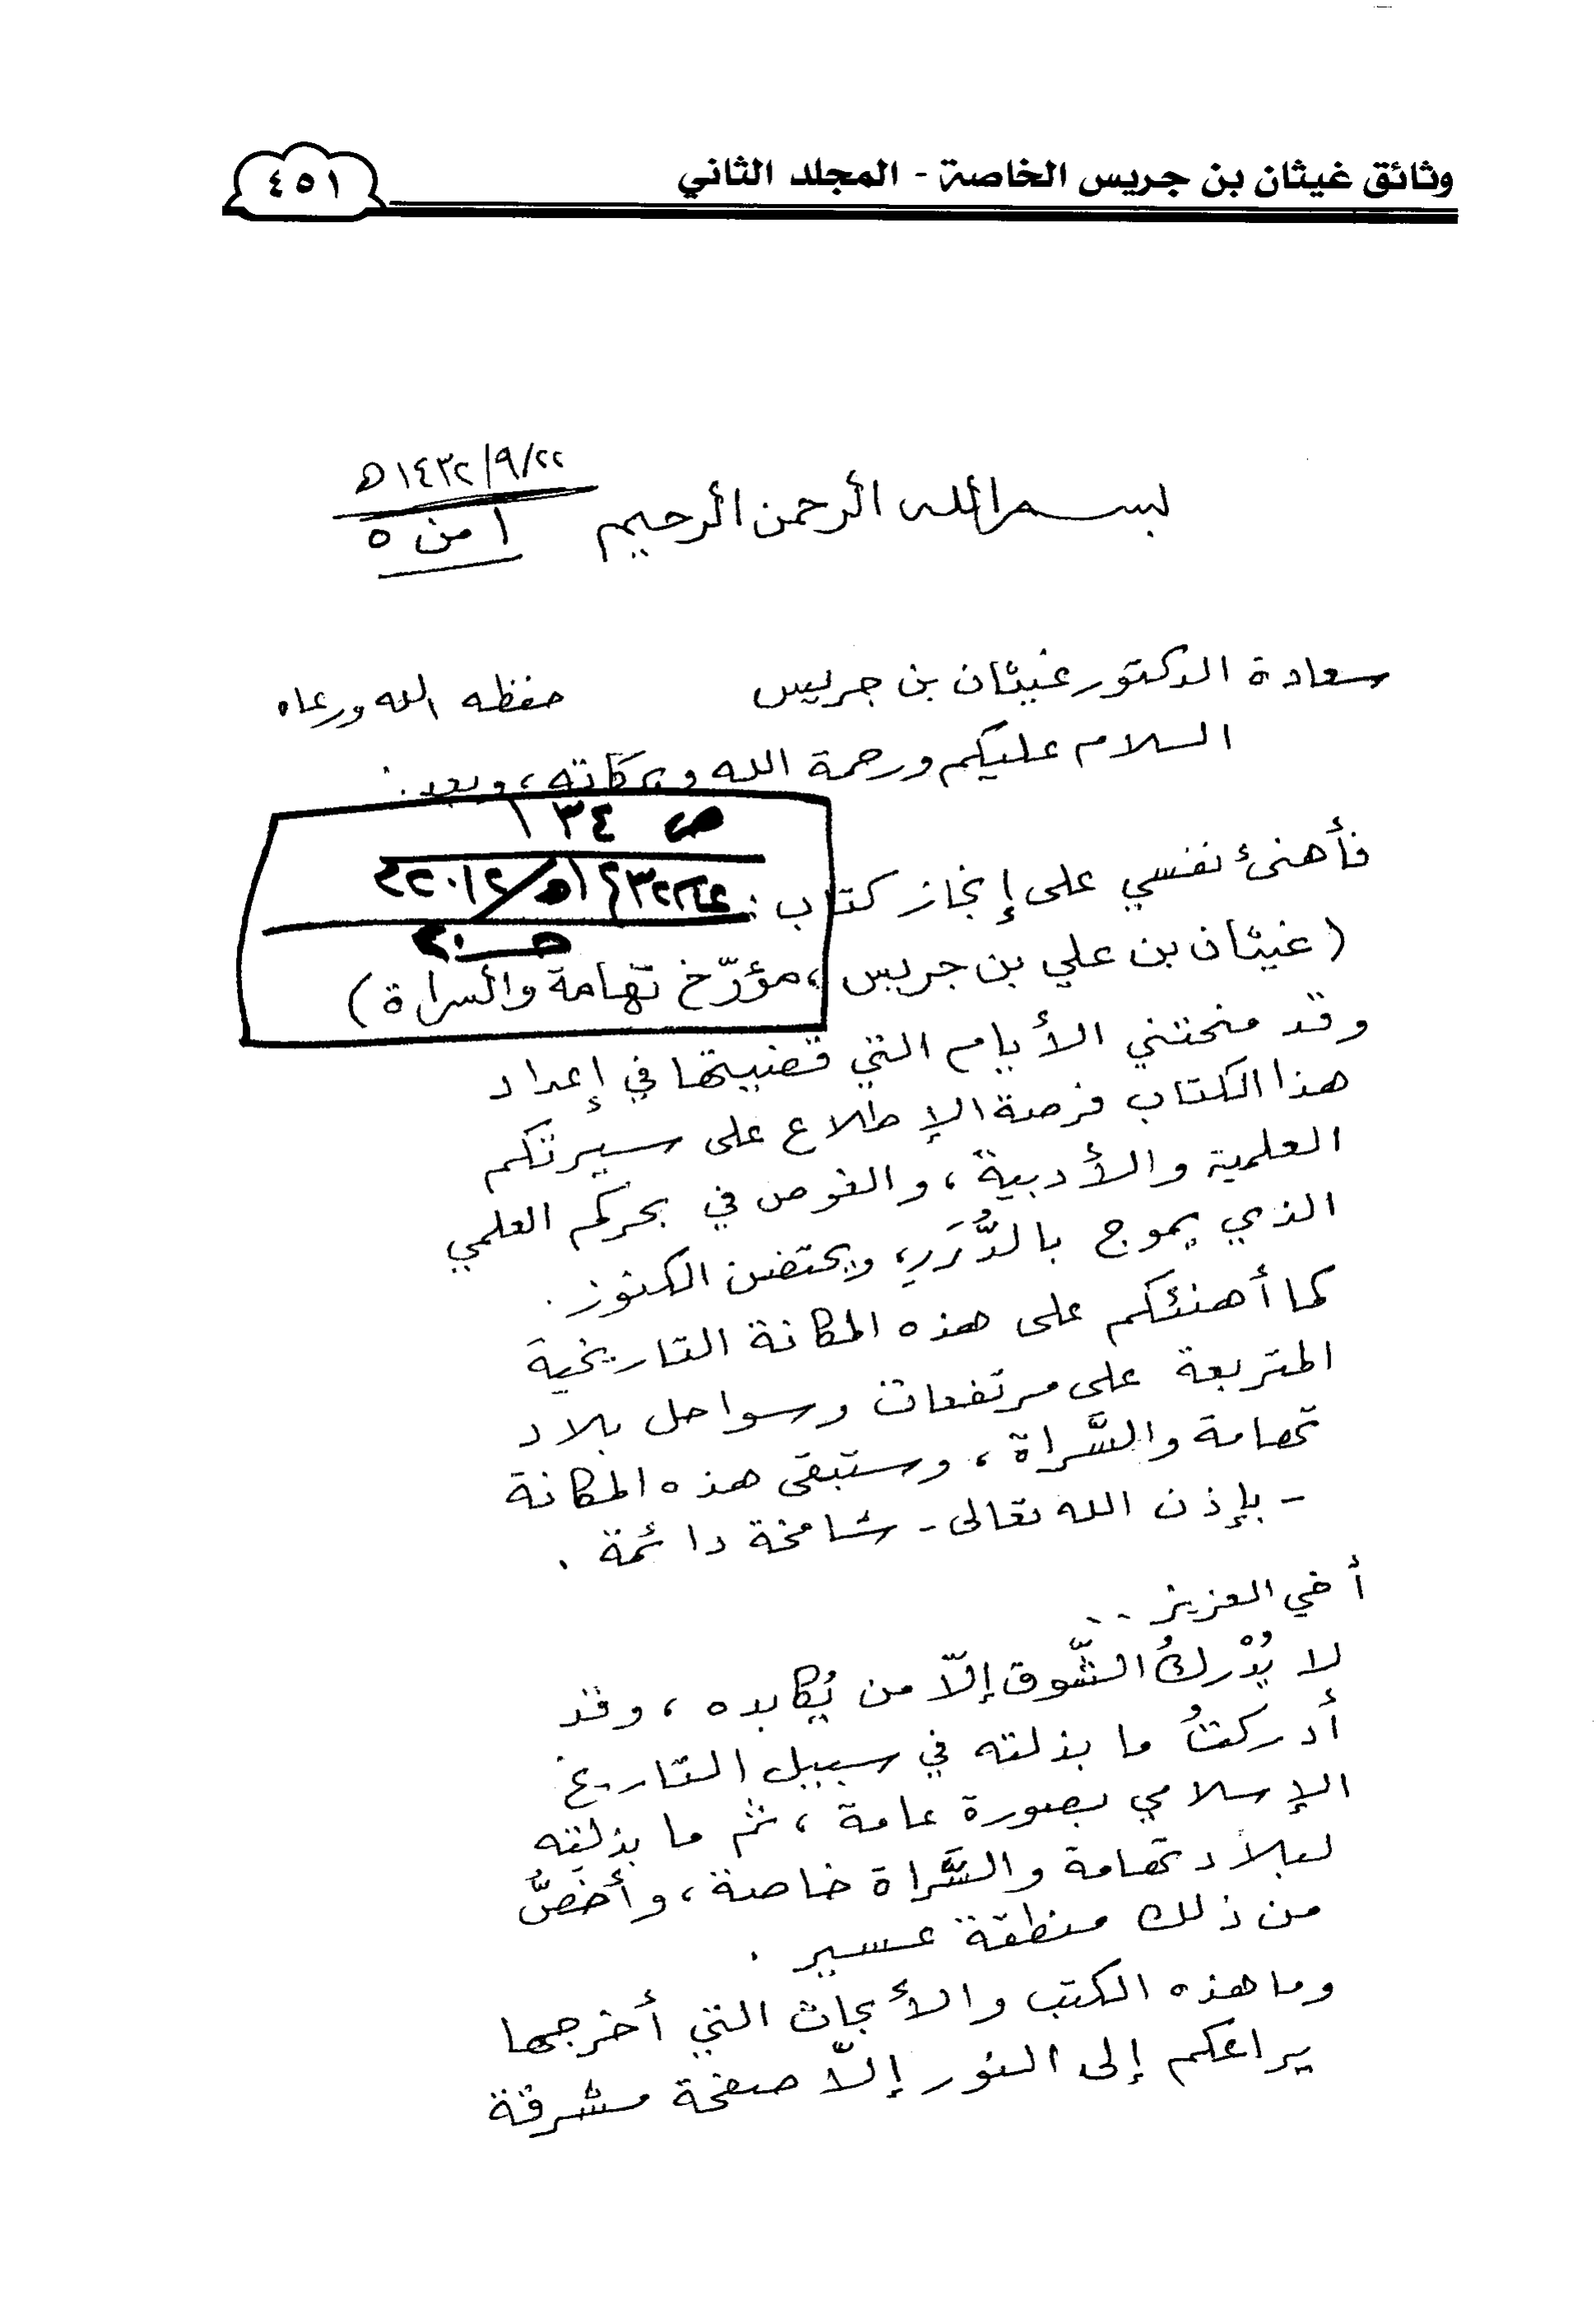 وثائق غيثان بن جريس الخاصة - المجلد الثاني
٤٥١
٢٢/٩/١٤٣٢هـ
بسم الله الرحمن الرحيم
١ من ٥
سعادة الدكتور غيثان بن جريس حفظه الله ورعاه
السلام عليكم ورحمة الله وبركاته، وبعد:
ص ١٣٤
فأهنئ نفسي على إنجاز كتاب:
(غيثان بن علي بن جريس، مؤرّخ تهامة والسراة)
وقد منحتني الأيام التي قضيتها في إعداد
هذا الكتاب فرصة الإطلاع على سيرتكم
العلمية والأدبية، والغوص في بحركم العلمي
الذي يموج بالدُّرَرِ، ويحتضن الكنوز.
كما أهنئكم على هذه المكانة التاريخية
المتربعة على مرتفعات وسواحل بلاد
تهامة والسَّراة، وستبقى هذه المكانة
- بإذن الله تعالى - شامخة دائمة.
أخي العزيز..
لا يُدْركُ الشّوق إلاّ من يُكابده، وقد
أدركتُ ما بذلته في سبيل التاريخ
الإسلامي بصورة عامة، ثم ما بذلته
لبلاد تهامة والسَّراة خاصة، وأخصُّ
من ذلك منطقة عسير.
وما هذه الكتب والأبحاث التي أخرجها
يراعكم إلى النور إلاّ صفحة مشرقة